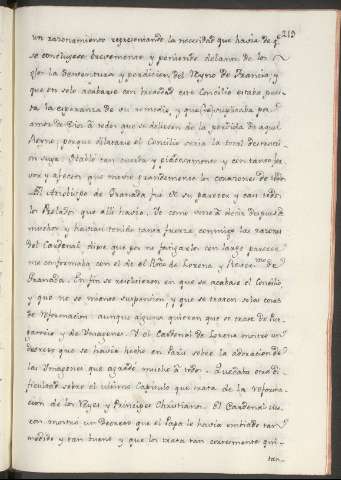 219
un razonamiento representando la necesidad que havia de q̃
se concluyese brevemente y poniendo delante de los
ojos la desventura y perdicion del Reyno de Francia y
que en solo acabarse con brevedad este Concilio estaba pues-
ta la esperanza de su remedio, y que suplicaba por
amor de Dios a todos que se doliesen de la perdida de aquel
Reyno, porque dilatarse el Concilio seria la total destruci-
on suya. Habló tan cuerda y piadosamente y con tanto fer-
vor y afecion que movió grandemente los corazones de todos
El Arzobispo de Granada fué de su parecer y casi todos
los Prelados que alli havia. Yo como vine á decir despues de
muchos y havian tenido tanta fuerza conmigo las razones
del Cardenal, dixe que por no fatigarlos con largo parecer
me conformaba con el de el Ill.mo de Lorena y Rever.mo de
Granada. En fin se resolvieron en que se acabase el Concilio
y que no se nombre suspension y que se traten solas cosas
de reformacion: aunque algunos quieren que se trate de Pur-
gatorio y de Imagenes. Y el Cardenal de Lorena mostró un
decreto que se havia hecho en Paris sobre la adoracion de
las Imagenes que agradó mucho á todos. Quedaba otra di-
ficultad sobre el ultimo Capitulo que trata de la reforma-
cion de los Reyes y Principes Christianos. El Cardenal
con mostró un Decreto que el Papa le havia embiado tan
medido y tan bueno y que los trata tan cortesmente qui-
tan-